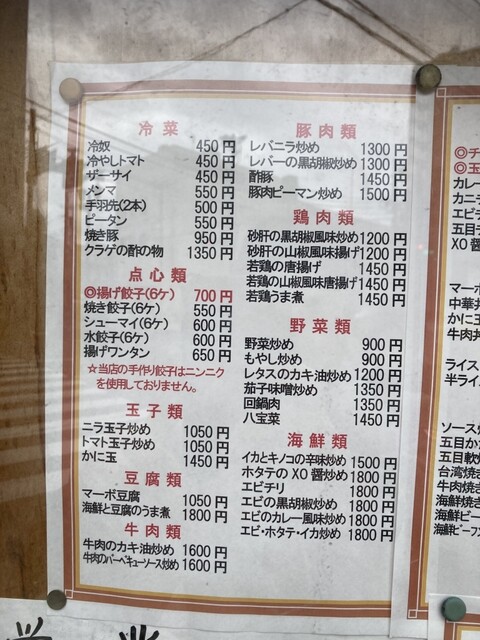 冷菜
冷奴 450円
冷やしトマト 450円
ザーサイ 450円
メンマ 550円
手羽先(2本) 500円
ピータン 550円
焼き豚 950円
クラゲの酢の物 1350円
点心類
◎揚げ餃子(6ケ) 700円
焼き餃子(6ケ) 550円
シューマイ(6ケ) 600円
水餃子(6ケ) 600円
揚げワンタン 650円
☆当店の手作り餃子はニンニク
を使用しておりません。
玉子類
ニラ玉子炒め 1050円
トマト玉子炒め 1050円
かに玉 1450円
豆腐類
マーボ豆腐 1050円
海鮮と豆腐のうま煮 1800円
牛肉類
牛肉のカキ油炒め 1600円
牛肉のバーベキューソース炒め 1600円
豚肉類
レバニラ炒め 1300円
レバーの黒胡椒炒め 1300円
酢豚 1450円
豚肉ピーマン炒め 1500円
鶏肉類
砂肝の黒胡椒風味炒め 1200円
砂肝の山椒風味揚げ 1200円
若鶏の唐揚げ 1450円
若鶏の山椒風味唐揚げ 1450円
若鶏うま煮 1450円
野菜類
野菜炒め 900円
もやし炒め 900円
レタスのカキ油炒め 1200円
茄子味噌炒め 1350円
回鍋肉 1350円
八宝菜 1450円
海鮮類
イカとキノコの辛味炒め 1500円
ホタテのXO醤炒め 1800円
エビチリ 1800円
エビの黒胡椒炒め 1800円
エビのカレー風味炒め 1800円
エビ・ホタテ・イカ炒め 1800円
◎チ
◎玉
カレー
カニラ
エビチ
五目チ
XO醤
マーボ
中華丼
かに玉
牛肉丼
ライス
半ライ
ソース炒
五目か
五目軟
台湾焼き
牛肉焼き
海鮮焼き
海鮮ビー
海鮮ビーフン